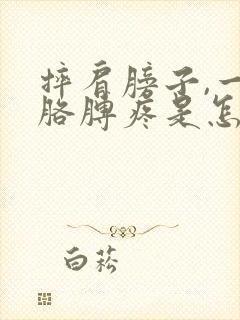 摔肩膀子,一
胳脾疼是怎
白菘